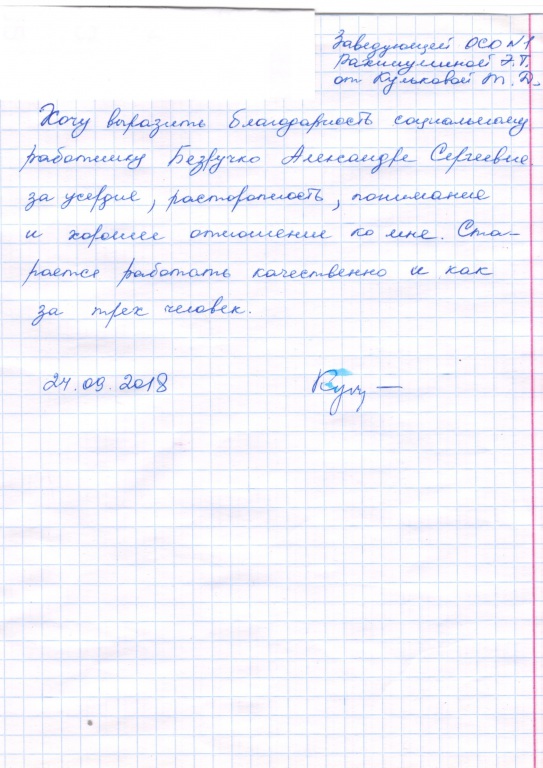 Заведующей ОСО №1
Рахишулиной Э.Т.
от Кульковой Т.Д.
Хочу выразить благодарность социальному
работнику Безручко Александре Сергеевне
за усердие, расторопность, понимание
и хорошее отношение ко мне. Ста-
рается работать качественно и как
за трех человек.
24.09.2018